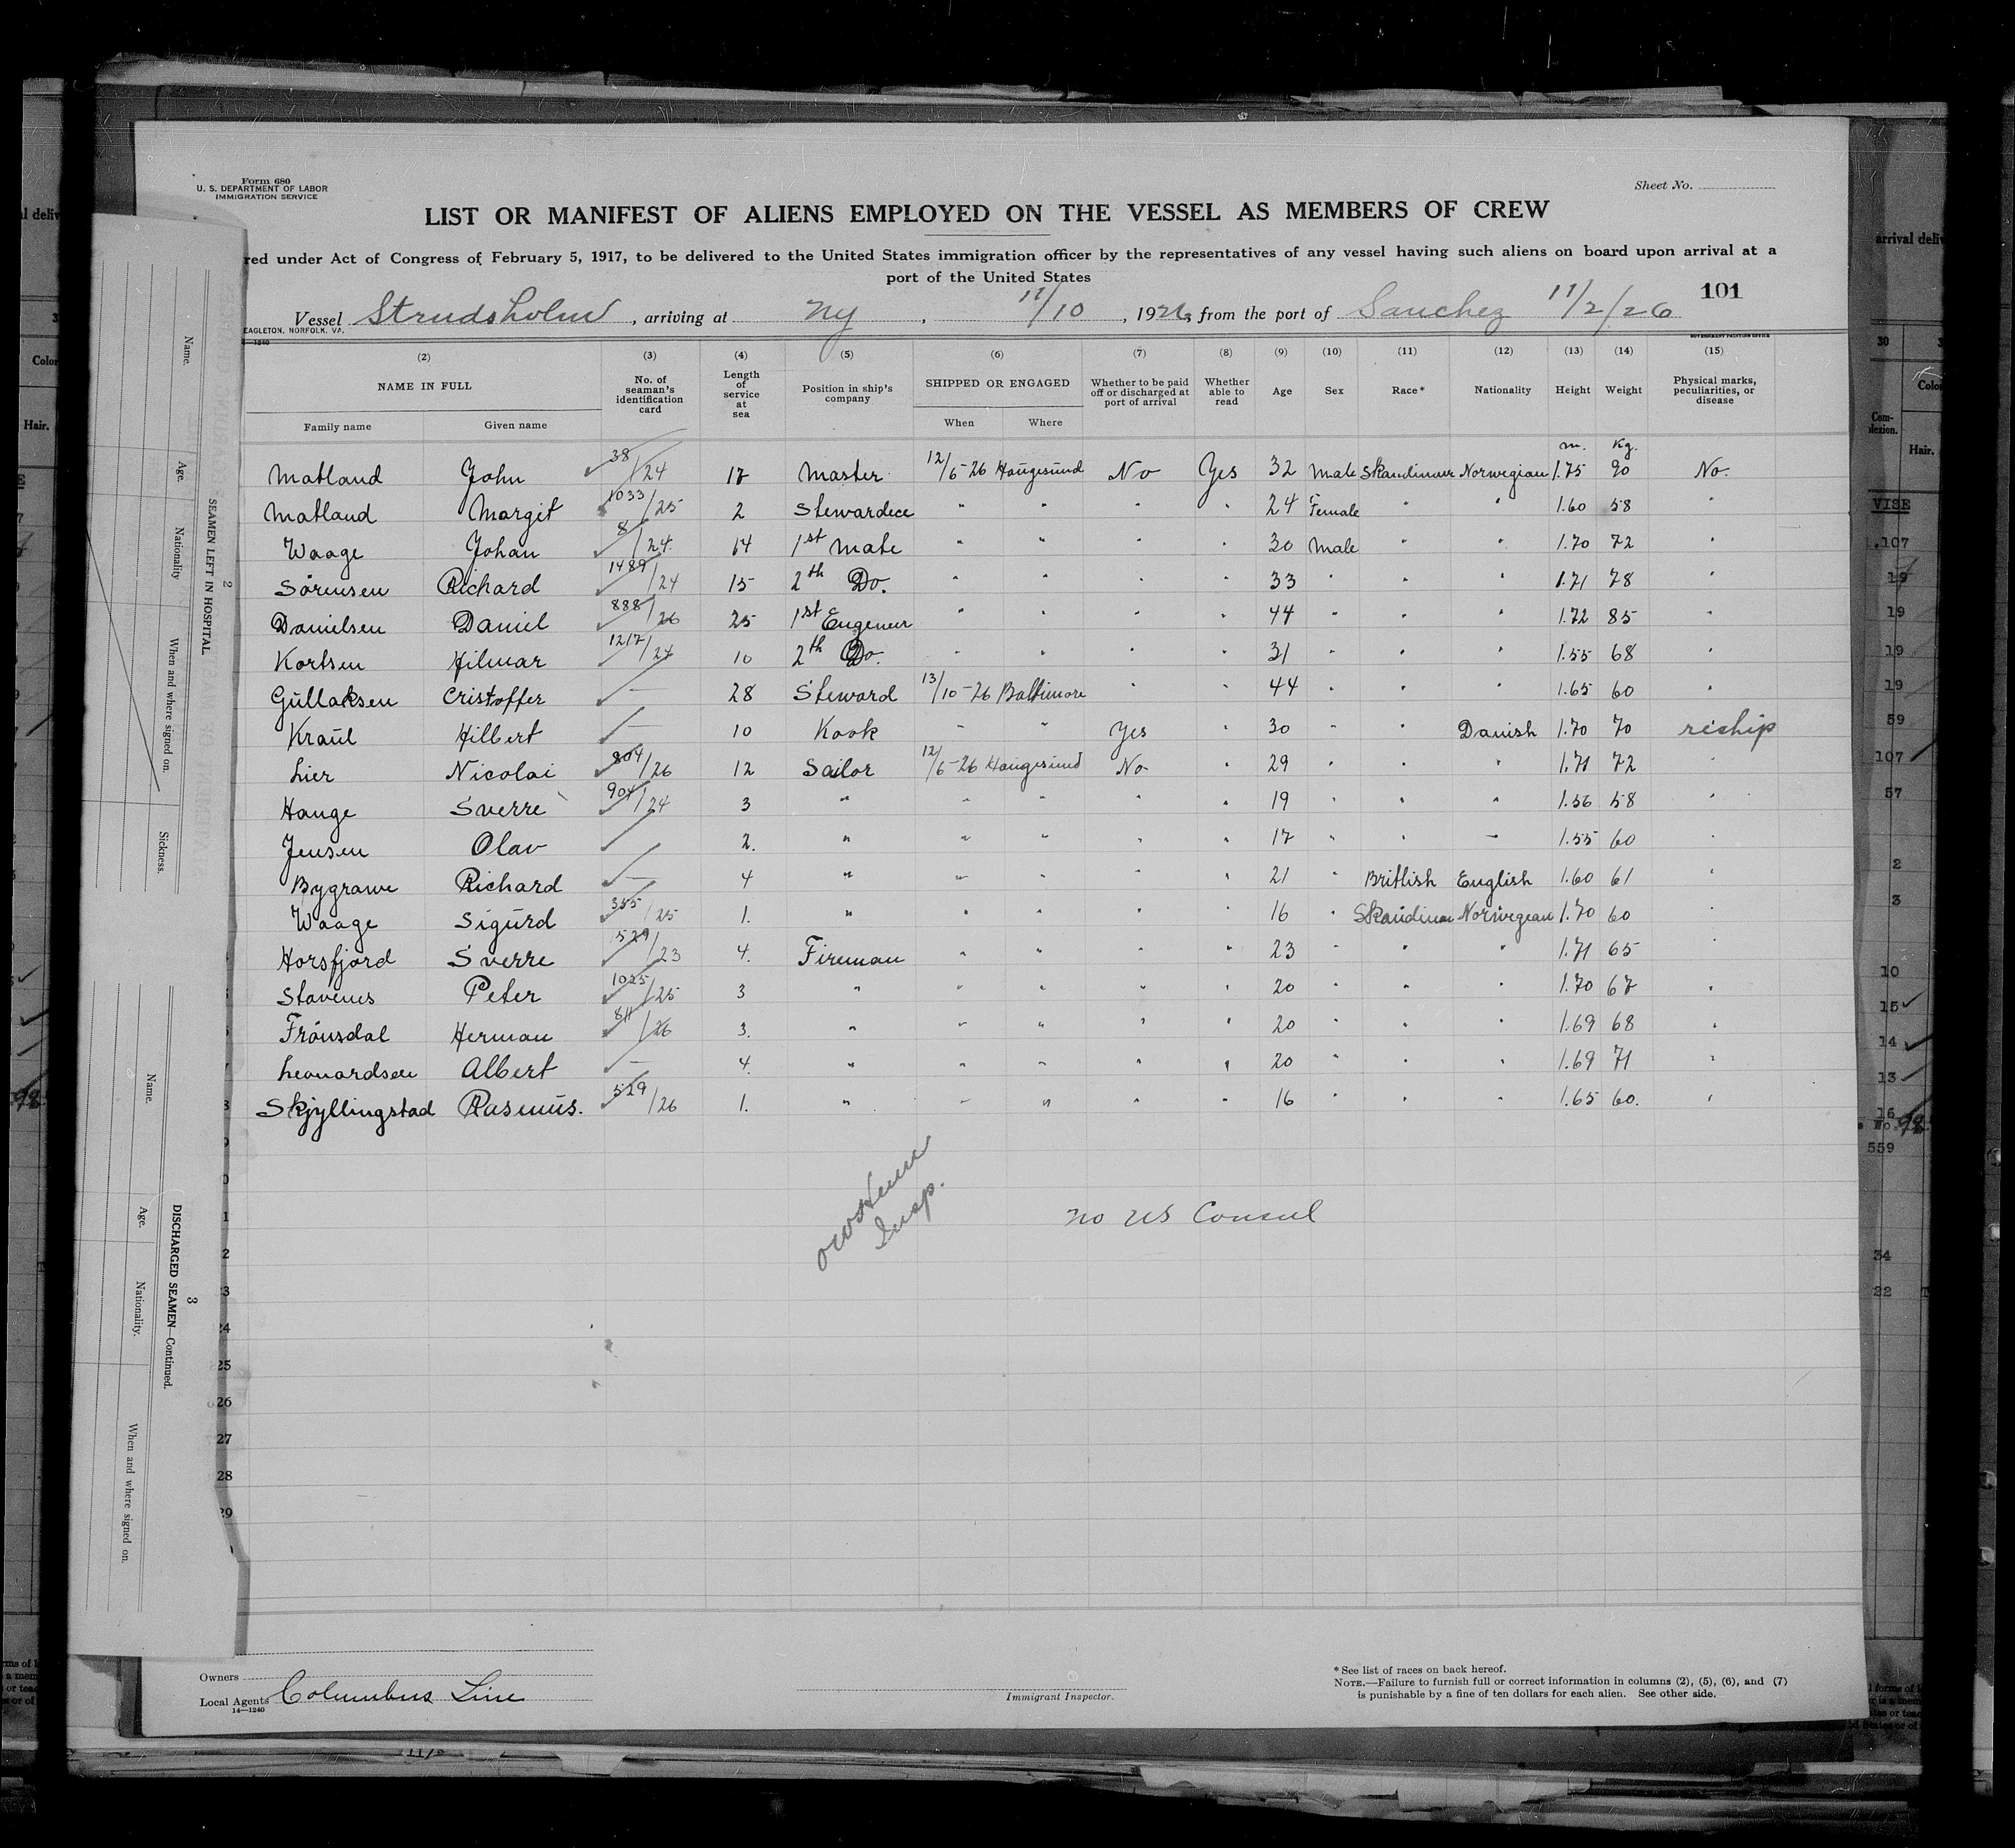 Form 680
U. S. DEPARTMENT OF LABOR
IMMIGRATION SERVICE
Sheet No.
LIST OR MANIFEST OF ALIENS EMPLOYED ON THE VESSEL AS MEMBERS OF CREW
red under Act of Congress of February 5, 1917, to be delivered to the United States immigration officer by the representatives of any vessel having such aliens on board upon arrival at a
port of the United States
101
Vessel Strudsholm, arriving at NY, 11/10, 1926, from the port of Sanchez 11/2/26
EAGLETON, NORFOLK, VA.
(2) (3) (4) (5) (6) (7) (8) (9) (10) (11) (12) (13) (14) (15)
NAME IN FULL No. of seaman's identification card Length of service at sea Position in ship's company SHIPPED OR ENGAGED Whether to be paid off or discharged at port of arrival Whether able to read Age Sex Race* Nationality Height Weight Physical marks, peculiarities, or disease
Family name Given name When Where
m. Kg.
Matland John 38/24 17 Master 12/5-26 Haugesund No Yes 32 Male Skandinav Norwegian 1.75 90 No.
Matland Margit 1033/25 2 Stewardece " " " " 24 Female " " 1.60 58 "
Waage Johan 8/24 14 1st Mate " " " " 30 Male " " 1.70 72 "
Sörensen Richard 1489/24 15 2th Do. " " " " 33 " " " 1.71 78 "
Danielsen Daniel 888/26 25 1st Engeneer " " " " 44 " " " 1.72 85 "
Kortsen Hilmar 1217/24 10 2th Do. " " " " 31 " " " 1.55 68 "
Gullaksen Cristoffer — 28 Steward 13/10-26 Baltimore " " 44 " " " 1.65 60 "
Kraul Hilbert — 10 Kook " " Yes " 30 " " Danish 1.70 70 reship
Lier Nicolai 804/26 12 Sailor 12/5-26 Haugesund No " 29 " " " 1.71 72 "
Hauge Sverre 904/24 3 " " " " " 19 " " " 1.56 58 "
Jensen Olav 2. " " " " " 17 " " " 1.55 60 "
Bygrawe Richard — 4 " " " " " 21 " Brittish English 1.60 61 "
Waage Sigurd 355/25 1. " " " " " 16 " Skandinav Norwegean 1.70 60 "
Horsfjord Sverre 529/23 4. Fireman " " " " 23 " " " 1.71 65 "
Stavenes Peter 1025/25 3 " " " " " 20 " " " 1.70 67 "
Frönsdal Herman 811/26 3. " " " " " 20 " " " 1.69 68 "
Leonardsen Albert — 4. " " " " " 20 " " " 1.69 71 "
Skjyllingstad Rasmus. 529/26 1. " " " " " 16 " " " 1.65 60. "
Insp.
no US Consul
24
25
26
27
28
29
Owners
Local Agents Columbus Line
14—1240
Immigrant Inspector.
*See list of races on back hereof.
NOTE.—Failure to furnish full or correct information in columns (2), (5), (6), and (7)
is punishable by a fine of ten dollars for each alien. See other side.
2
SEAMEN LEFT IN HOSPITAL.
Name. Age. Nationality When and where signed on. Sickness.
3
DISCHARGED SEAMEN—Continued.
Name. Age. Nationality. When and where signed on.